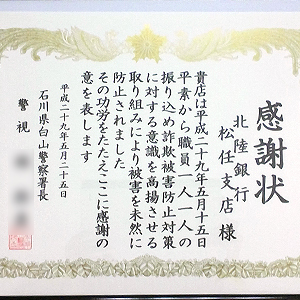 感謝状
北陸銀行
松任支店 様
貴店は平成二十九年五月十五日
平素から職員一人一人の
振り込め詐欺被害防止対策
に対する意識を高揚させる
取り組みにより被害を未然に
防止されました
その功労をたたえここに感謝の
意を表します
平成二十九年五月二十五日
石川県白山警察署長
警視